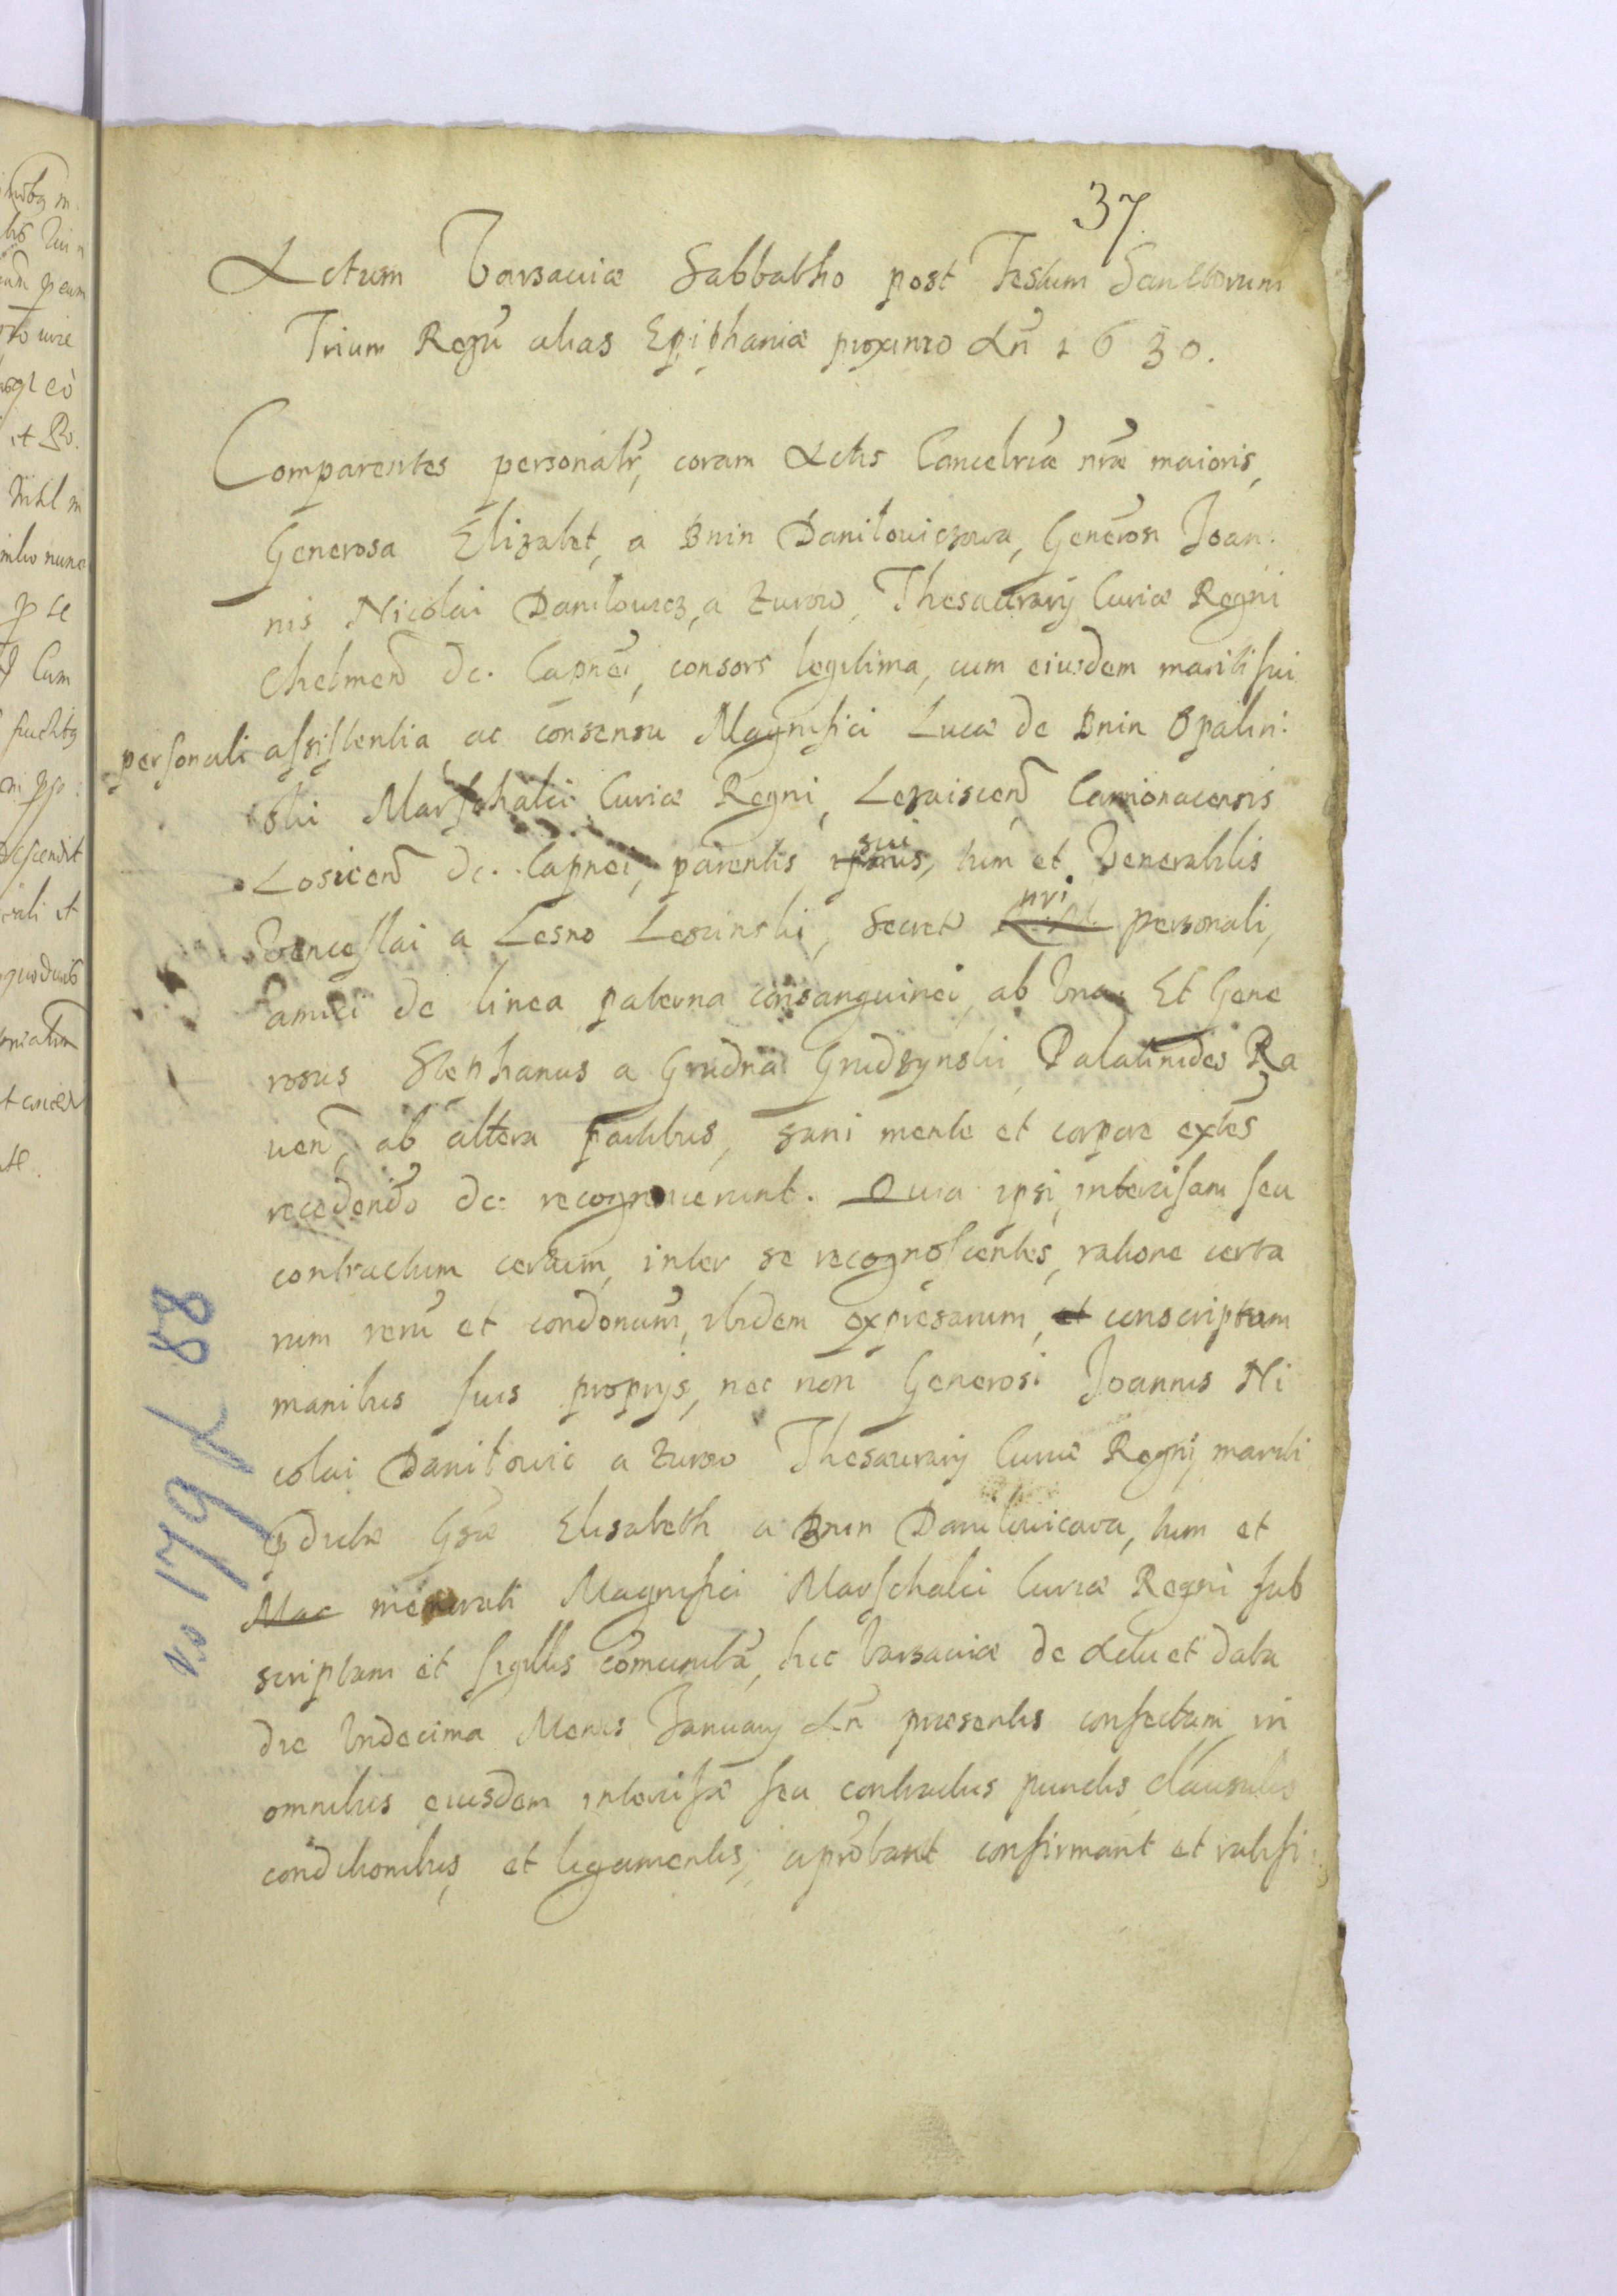 37.
Actum Varsauiæ Sabbatho post Festum Sanctorum
Trium Regū alias Epiphaniæ proximo An̄ 1630.
Comparentes personalr̄, coram Actis Cancelriæ nr̄æ maioris,
Generosa Elizabet, a Bnin Daniłowiczowa, Generosi Joan.
nis Nicolai Daniłowicz, a Zurow, Thesaurarij Curiæ Regni
Chelmen̄ &c. Capnei, consors legitima, cum eiusdem mariti sui
personali assistentia, ac consensu Magnifici Lucæ de Bnin Opalin:
ski Marschalci Curiæ Regni, Lezaiscen̄ Camionacensis
Losicen̄ &c. Capnei, parentis sui, tum et Venerabilis
Venceslai a Lesno Lesczinski, Secret nri personali,
amici de linea paterna consanguinei, ab Vna. Et Gene
rosus Stephanus a Grudna Grudzynski, Palatinides Ra
uen̄, ab altera partibus, sani mente et corpore extes̄
recedendo &c: recognouerunt. Quia ipsi, intercisam seu
contractum certum, inter se recognoscentes, ratione certa
rum rerū et condonum̄, ibidem expressarum, et conscriptam
manibus suis proprijs, nec non Generosi Joannis Ni
colai Daniłowic a Zurow Thesaurarij Curiæ Regni, mariti
pdictæ Gsæ Elisabeth a Bnin Danilowicowa, tum et
Mac memorati Magnifici Marschalci Curiæ Regni sub
scriptam et sigillis com̄unitā, hic Varsauiæ de Actu et data
die Vndecima Mensis Januarij An̄ præsentis confectam, in
omnibus eiusdem intercisæ seu contractus punctis, clausulis
conditionibus, et ligamentis, aprobant confirmant et ratifi:
No 179 f 88